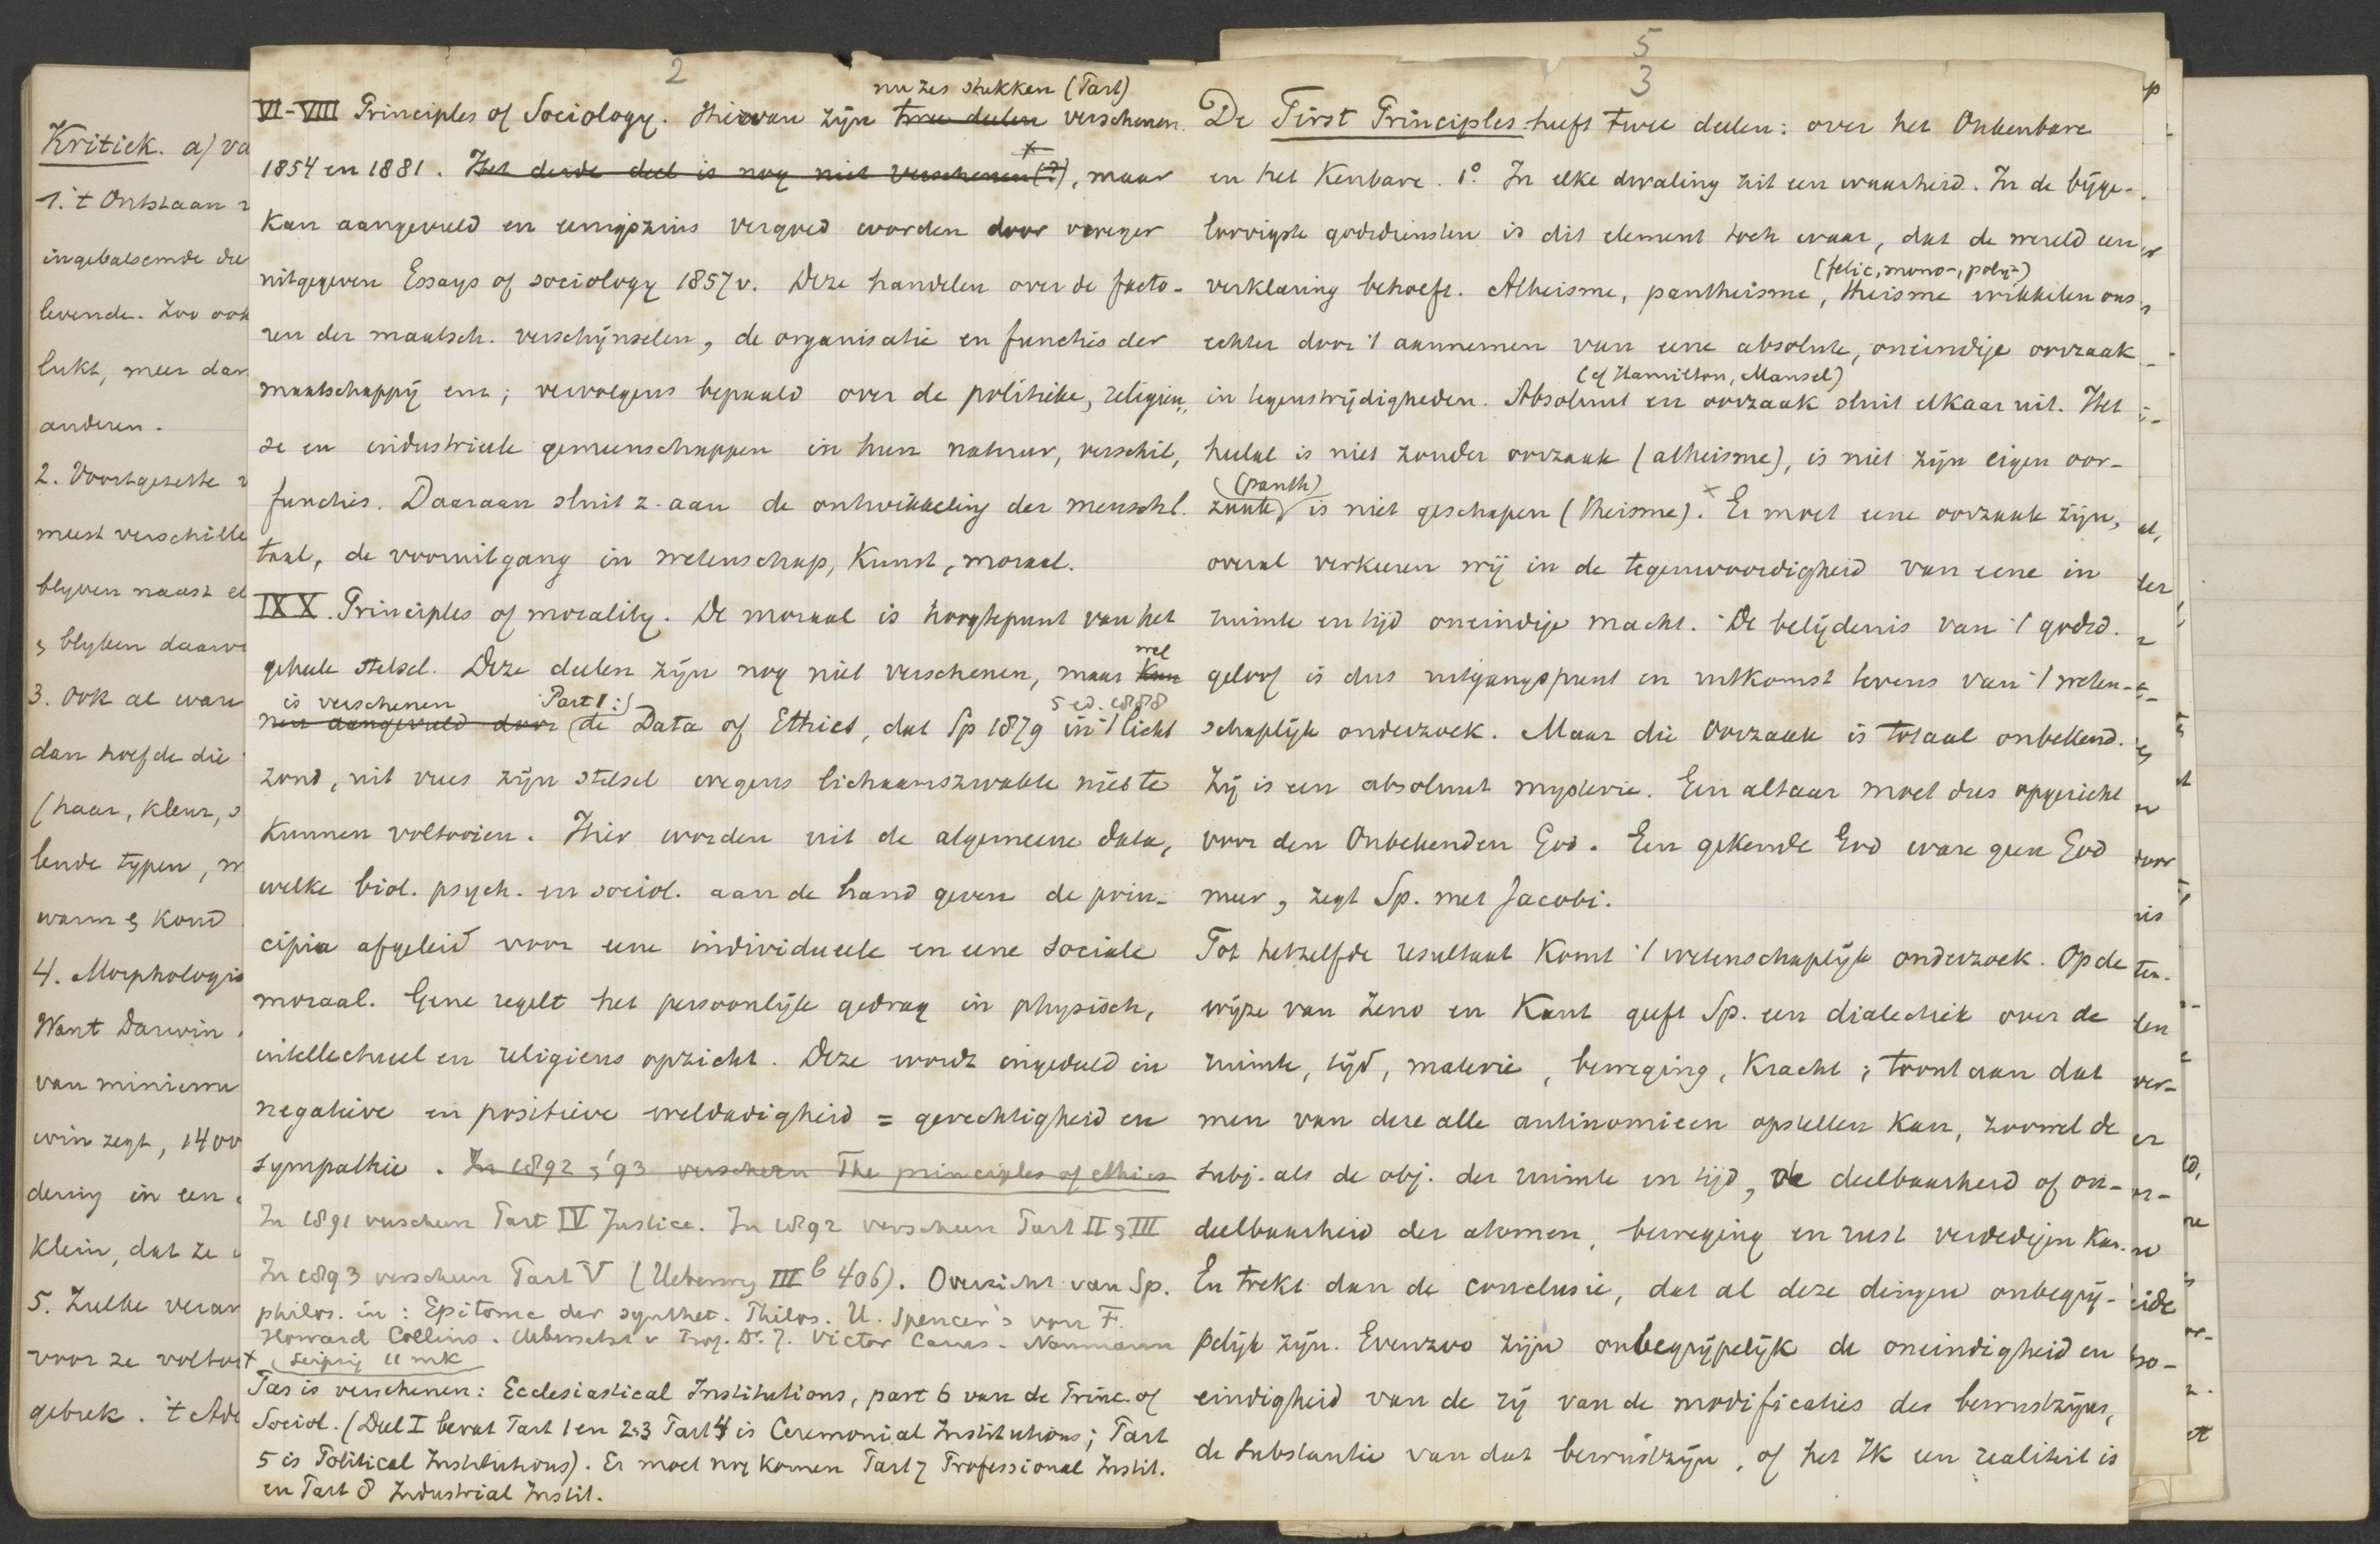 2
nu zes stukken (Part)
VI-VIII Principles of Sociology. Hiervan zijn twee deelen verschenen.
1854 en 1881. Het derde deel is nog niet verschenen (?), maar
kan aangevuld en eenigszins vergoed worden door vroeger
uitgegeven Essays of sociology 1857 v. Deze handelen over de facto-
ren der maatsch. verschijnselen, de organisatie en functies der
maatschappij enz; vervolgens bepaald over de politieke, religieu-
se en industrieele gemeenschappen in hun natuur, verschil,
functies. Daaraan sluit z. aan de ontwikkeling der menschl.
taal, de vooruitgang in wetenschap, kunst, moraal.
IX X. Principles of morality. De moraal is hoogtepunt van het
geheele stelsel. Deze deelen zijn nog niet verschenen, maar kun
wel
is verschenen Part I:
5 ed. 1888
nen aangevuld door (de Data of Ethics, dat Sp 1879 in 't licht
zond, uit vrees zijn stelsel wegens lichaamszwakte niet te
kunnen voltooien. Hier worden uit de algemeene data,
welke biol. psych. en sociol. aan de hand geven de prin-
cipia afgeleid voor eene individueele en eene sociale
moraal. Gene regelt het persoonlijk gedrag in physisch,
intellectueel en religieus opzicht. Deze wordt ingedeeld in
negatieve en positieve weldadigheid = gerechtigheid en
sympathie. In 1892 & '93 verscheen The principles of ethics
In 1891 verscheen Part IV Justice. In 1892 verscheen Part II & III
In 1893 verscheen Part V (Ueberweg III b 406). Overzicht van Sp.
philos. in: Epitome der synthet. Philos. H. Spencer's von F.
Howard Collins. Uebersetzt v Prof. Dr. J. Victor Carus. Naumann
Leipzig 11 mk
Pas is verschenen: Ecclesiastical Institutions, part 6 van de Princ. of
Sociol. (Deel I bevat Part 1 en 2.3 Part 4 is Ceremonial Institutions; Part
5 is Political Institutions). Er moet nog komen Part 7 Professional Instit.
en Part 8 Industrial Instit.
5
3
De First Principles heeft twee deelen: over het Onkenbare
en het Kenbare. 1º. In elke dwaling zit een waarheid. In de bijge-
loovigste godsdiensten is dit element toch waar, dat de wereld een
verklaring behoeft. Atheisme, pantheisme, theisme wikkelen ons
(fetic, mono-, poly-)
echter door 't aannemen van eene absolute, oneindige oorzaak
(cf Hamilton, Mansel)
in tegenstrijdigheden. Absoluut en oorzaak sluit elkaar uit. Het
heelal is niet zonder oorzaak (atheisme), is niet zijn eigen oor-
(panth)
zaak, is niet geschapen (theisme). Er moet eene oorzaak zijn,
overal verkeeren wij in de tegenwoordigheid van eene in
ruimte en tijd oneindige macht. De belijdenis van 't godsd.
geloof is dus uitgangspunt en uitkomst tevens van 't weten-
schaplijk onderzoek. Maar die Oorzaak is totaal onbekend.
Zij is een absoluut mysterie. Een altaar moet dus opgericht
voor den Onbekenden God. Een gekende God ware geen God
meer, zegt Sp. met Jacobi.
Tot hetzelfde resultaat komt 't wetenschaplijk onderzoek. Op de
wijze van Zeno en Kant geeft Sp. een dialectiek over de
ruimte, tijd, materie, beweging, kracht; toont aan dat
men van deze alle antinomieen opstellen kan, zoowel de
subj. als de obj. der ruimte en tijd, de deelbaarheid of on-
deelbaarheid der atomen, beweging en rust verdedigen kan.
En trekt dan de conclusie, dat al deze dingen onbegrij-
pelijk zijn. Evenzoo zijn onbegrijpelijk de oneindigheid en
eindigheid van de rij van de modificaties des bewustzijns,
de substantie van dat bewustzijn, of het Ik een realiteit is
Kritiek. a) va
1. 't Ontstaan
ingebalsemde die
levende. Zoo ook
lukt, meer dan
anderen.
2. Voortgezette
meest verschille
blijven naast el
& blijken daarv
3. Ook al ware
dan hoefde die
(haar, kleur, s
lende typen,
warm & koud
4. Morphologis
Want Darwin
van miniem
win zegt, 1400
dering in een
klein, dat ze
5. Zulke veran
voor ze voltooi
gebrek. 't Ade